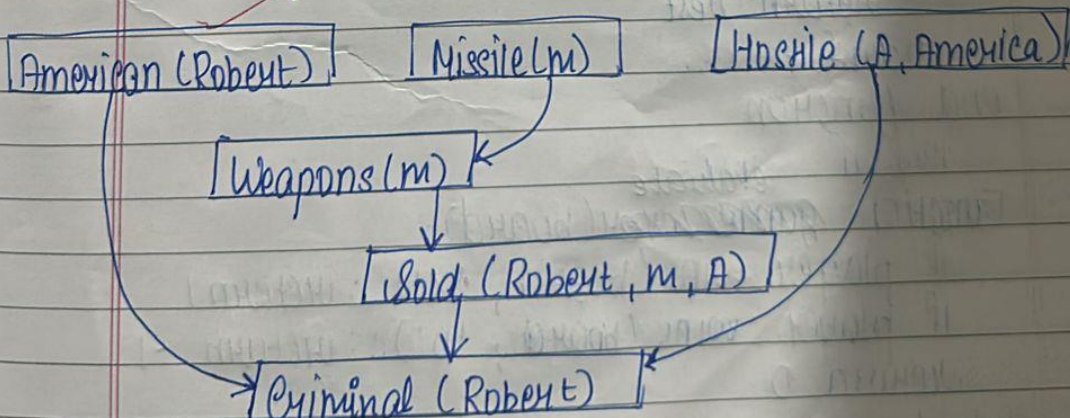 American (Robert) Missile(m) Hostile (A, America)
Weapons(m)
Sold (Robert, m, A)
Criminal (Robert)